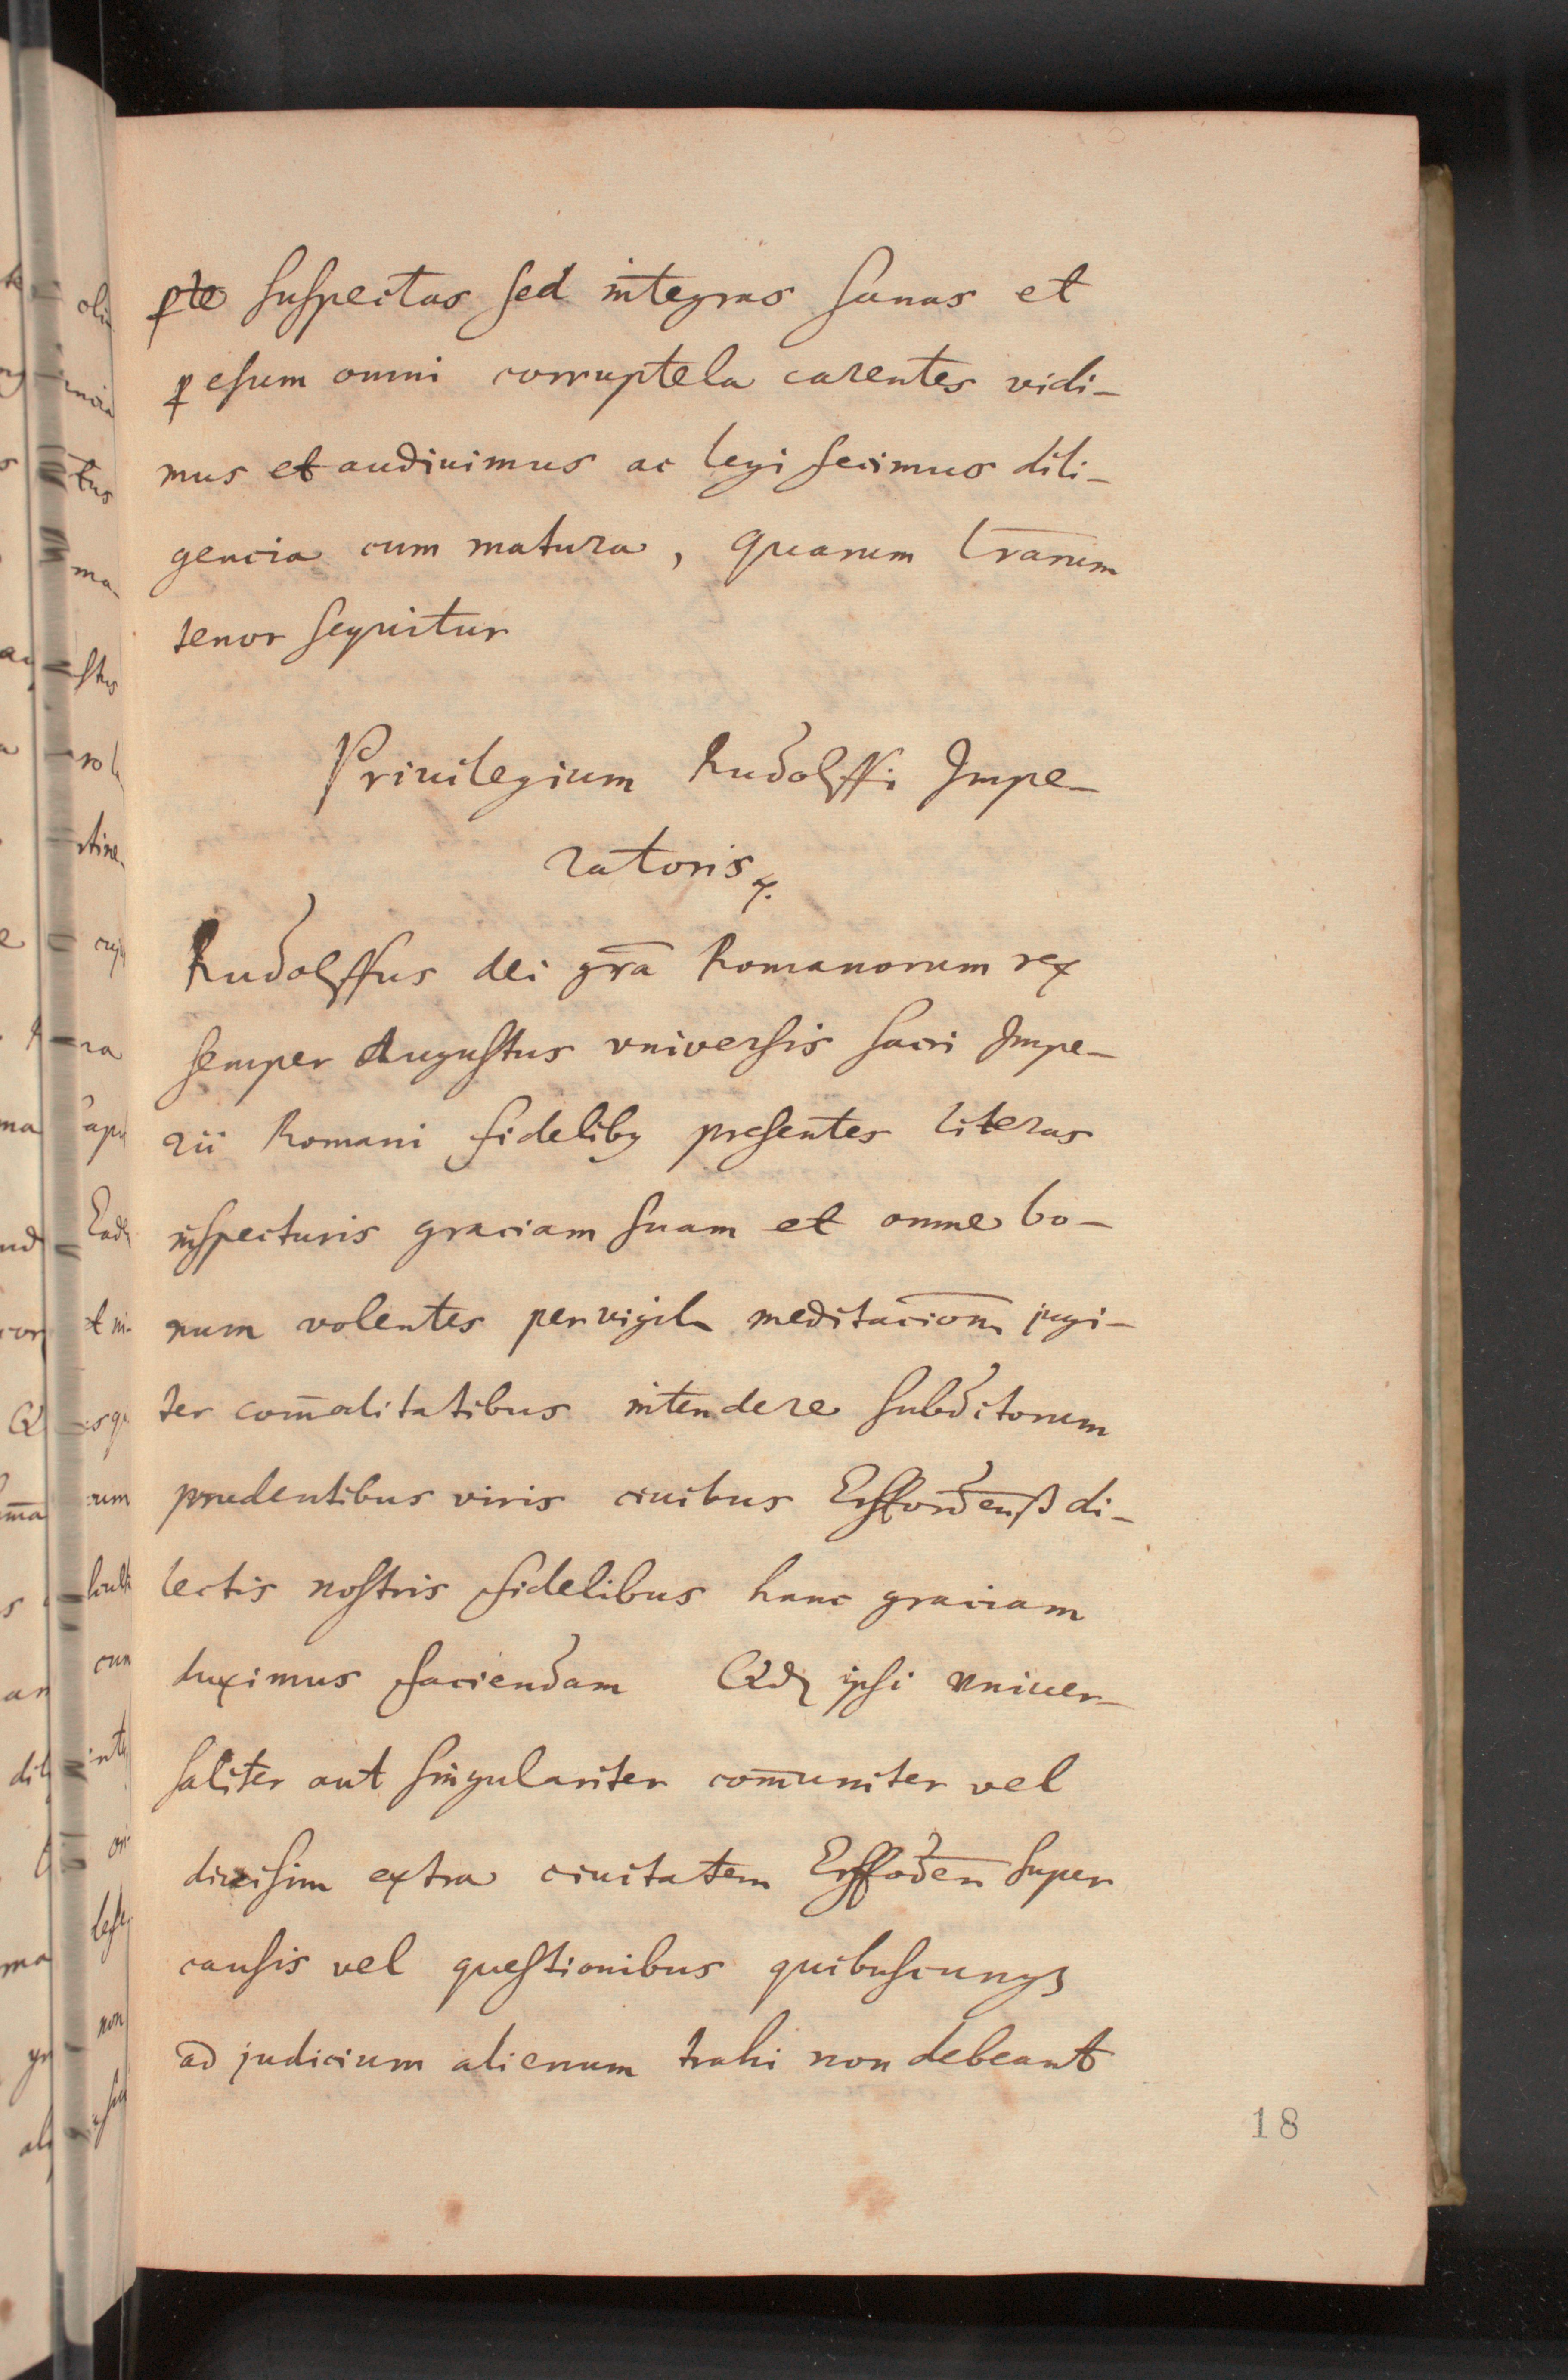 ꝑte suspectas sed integras sanas et
ꝑ esum omni corruptela carentes vidi-
mus et audiuimus ac legi fecimus dili-
gencia cum matura, quarum l̅rarum
tenor sequitur
Priuilegium Rudolffi Impe-
ratoris
Rudolffus dei gr̅a Romanorum rex
semper Augustus vniversis sacri Impe-
rii Romani fidelibꝫ presentes literas
inspecturis graciam suam et omne bo-
num volentes pervigili meditacion̅ jugi-
ter com̅alitatibus intendere subditorum
prudentibus viris ciuibus Erffordenß di-
lectis nostris fidelibus hanc graciam
duximus faciendam Qdꝫ ipsi vniuer-
saliter aut singulariter com̅uniter vel
diuisim extra ciuitatem Erffoden̅ super
causis vel questionibus quibuscunqꝫ
ad judicium alienum trahi non debeant
18